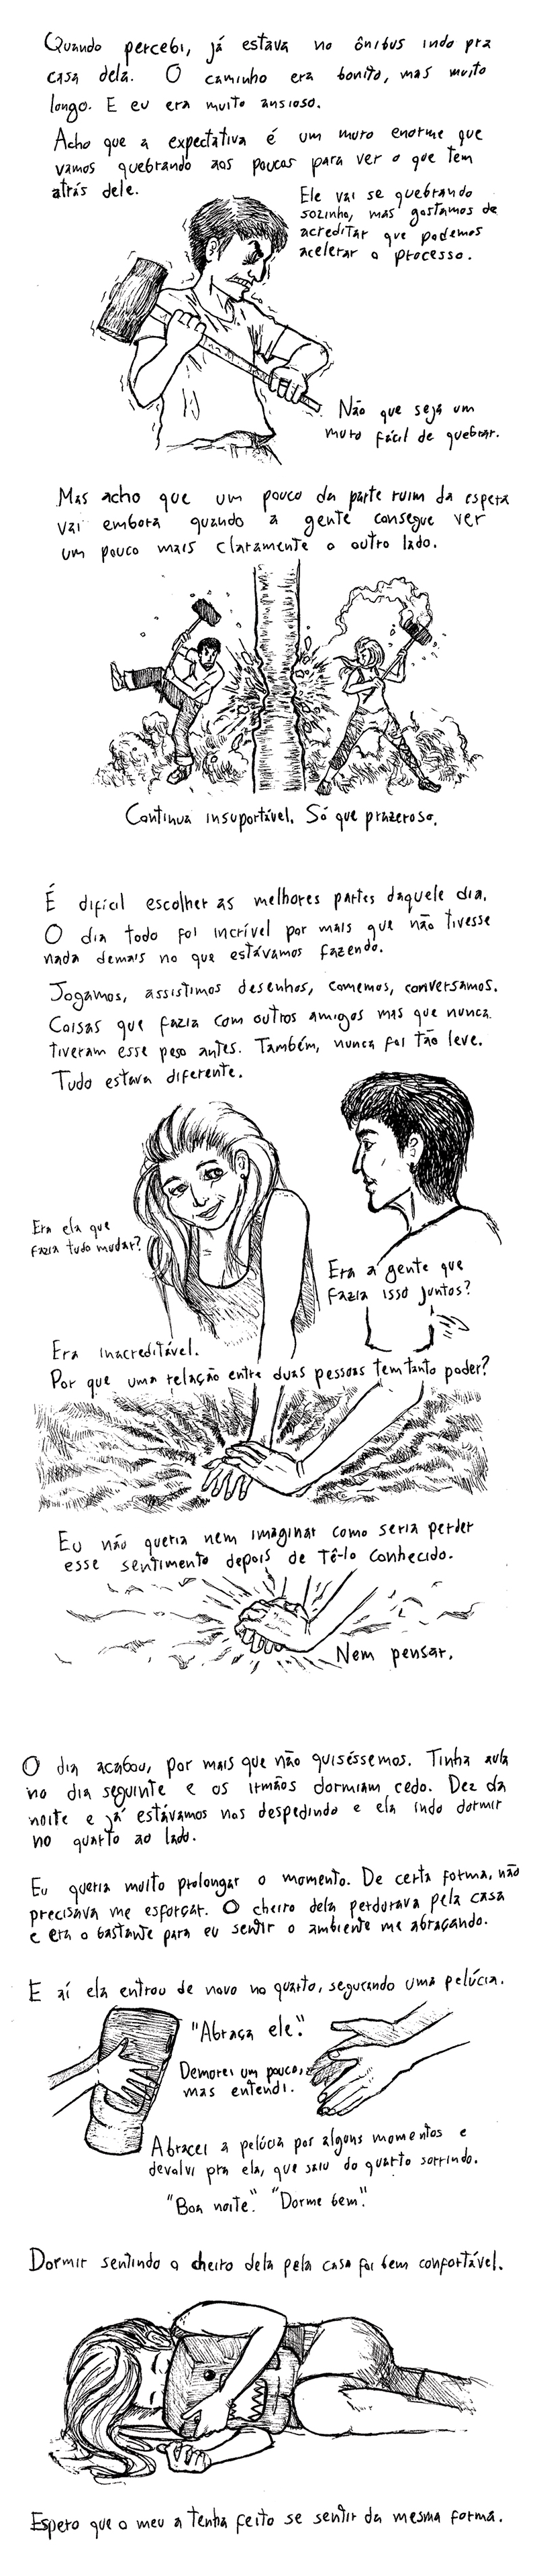 Quando percebi, já estava no ônibus indo pra
casa dela. O caminho era bonito, mas muito
longo. E eu era muito ansioso.
Acho que a expectativa é um muro enorme que
vamos quebrando aos poucos para ver o que tem
atrás dele.
Ele vai se quebrando
sozinho, mas gostamos de
acreditar que podemos
acelerar o processo.
Não que seja um
muro fácil de quebrar.
Mas acho que um pouco da parte ruim da espera
vai embora quando a gente consegue ver
um pouco mais claramente o outro lado.
Continua insuportável. Só que prazeroso.
É difícil escolher as melhores partes daquele dia.
O dia todo foi incrível por mais que não tivesse
nada demais no que estávamos fazendo.
Jogamos, assistimos desenhos, comemos, conversamos.
Coisas que fazia com outros amigos mas que nunca
tiveram esse peso antes. Também, nunca foi tão leve.
Tudo estava diferente.
Era ela que
fazia tudo mudar?
Era a gente que
fazia isso juntos?
Era inacreditável.
Por que uma relação entre duas pessoas tem tanto poder?
Eu não queria nem imaginar como seria perder
esse sentimento depois de tê-lo conhecido.
Nem pensar.
O dia acabou, por mais que não quiséssemos. Tinha aula
no dia seguinte e os irmãos dormiam cedo. Dez da
noite e já estávamos nos despedindo e ela indo dormir
no quarto ao lado.
Eu queria muito prolongar o momento. De certa forma, não
precisava me esforçar. O cheiro dela perdurava pela casa
e era o bastante para eu sentir o ambiente me abraçando.
E aí ela entrou de novo no quarto, segurando uma pelúcia.
"Abraça ele".
Demorei um pouco,
mas entendi.
Abracei a pelúcia por alguns momentos e
devolvi pra ela, que saiu do quarto sorrindo.
"Boa noite". "Dorme bem".
Dormir sentindo o cheiro dela pela casa foi bem confortável.
Espero que o meu a tenha feito se sentir da mesma forma.